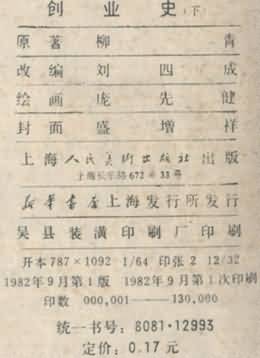 创业史(下)
原著 柳青
改编 刘四成
绘画 庞先健
封面 盛增祥
上海人民美术出版社出版
上海长乐路672弄33号
新华书店上海发行所发行
吴县装潢印刷厂印刷
开本787×1092 1/64 印张2 12/32
1982年9月第1版 1982年9月第1次印刷
印数 000,001——130,000
统一书号：8081·12993
定价：0.17元